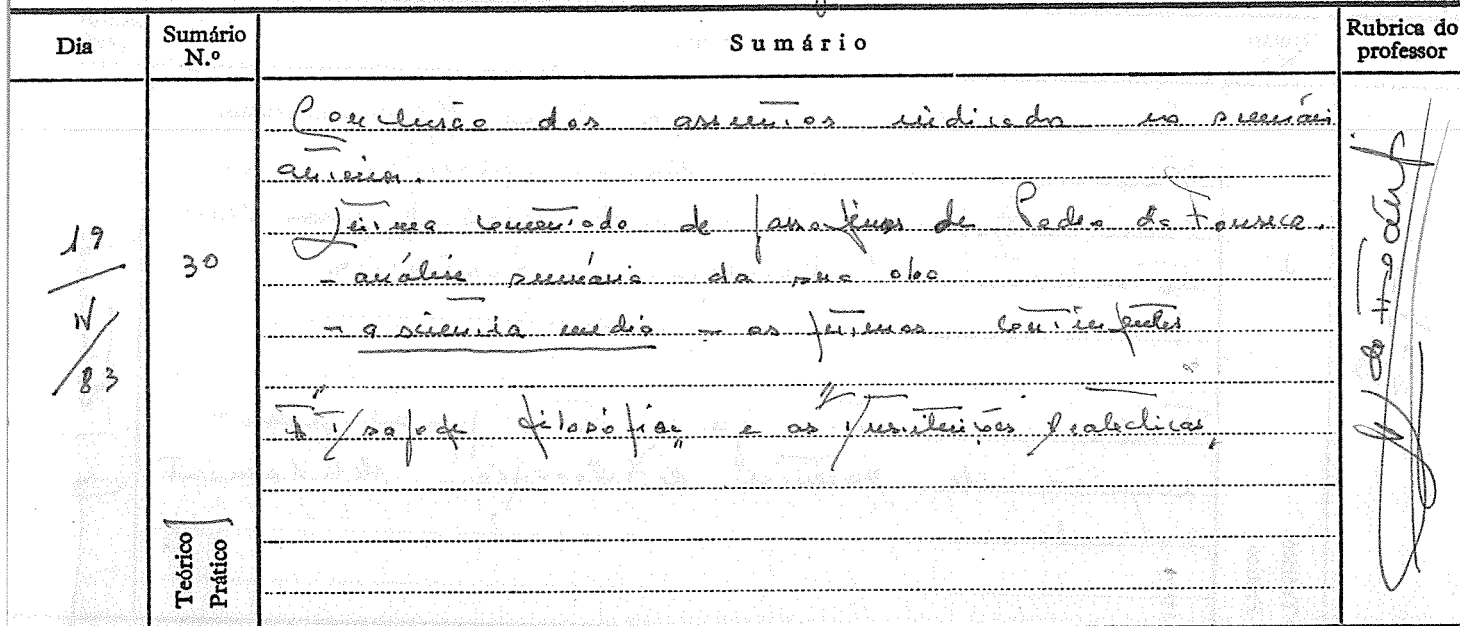 Dia
Sumário N.º
Sumário
Rubrica do professor
19/IV/83
30
Conclusão dos assuntos indicados no sumário
anterior.
Leitura comentada de passagens de Pedro da Fonseca.
- análise sumária da sua obra
- a sciencia media - os futuros contingentes
"Isagoge filosófica" e as "Instituições Dialécticas"
Teórico
Prático